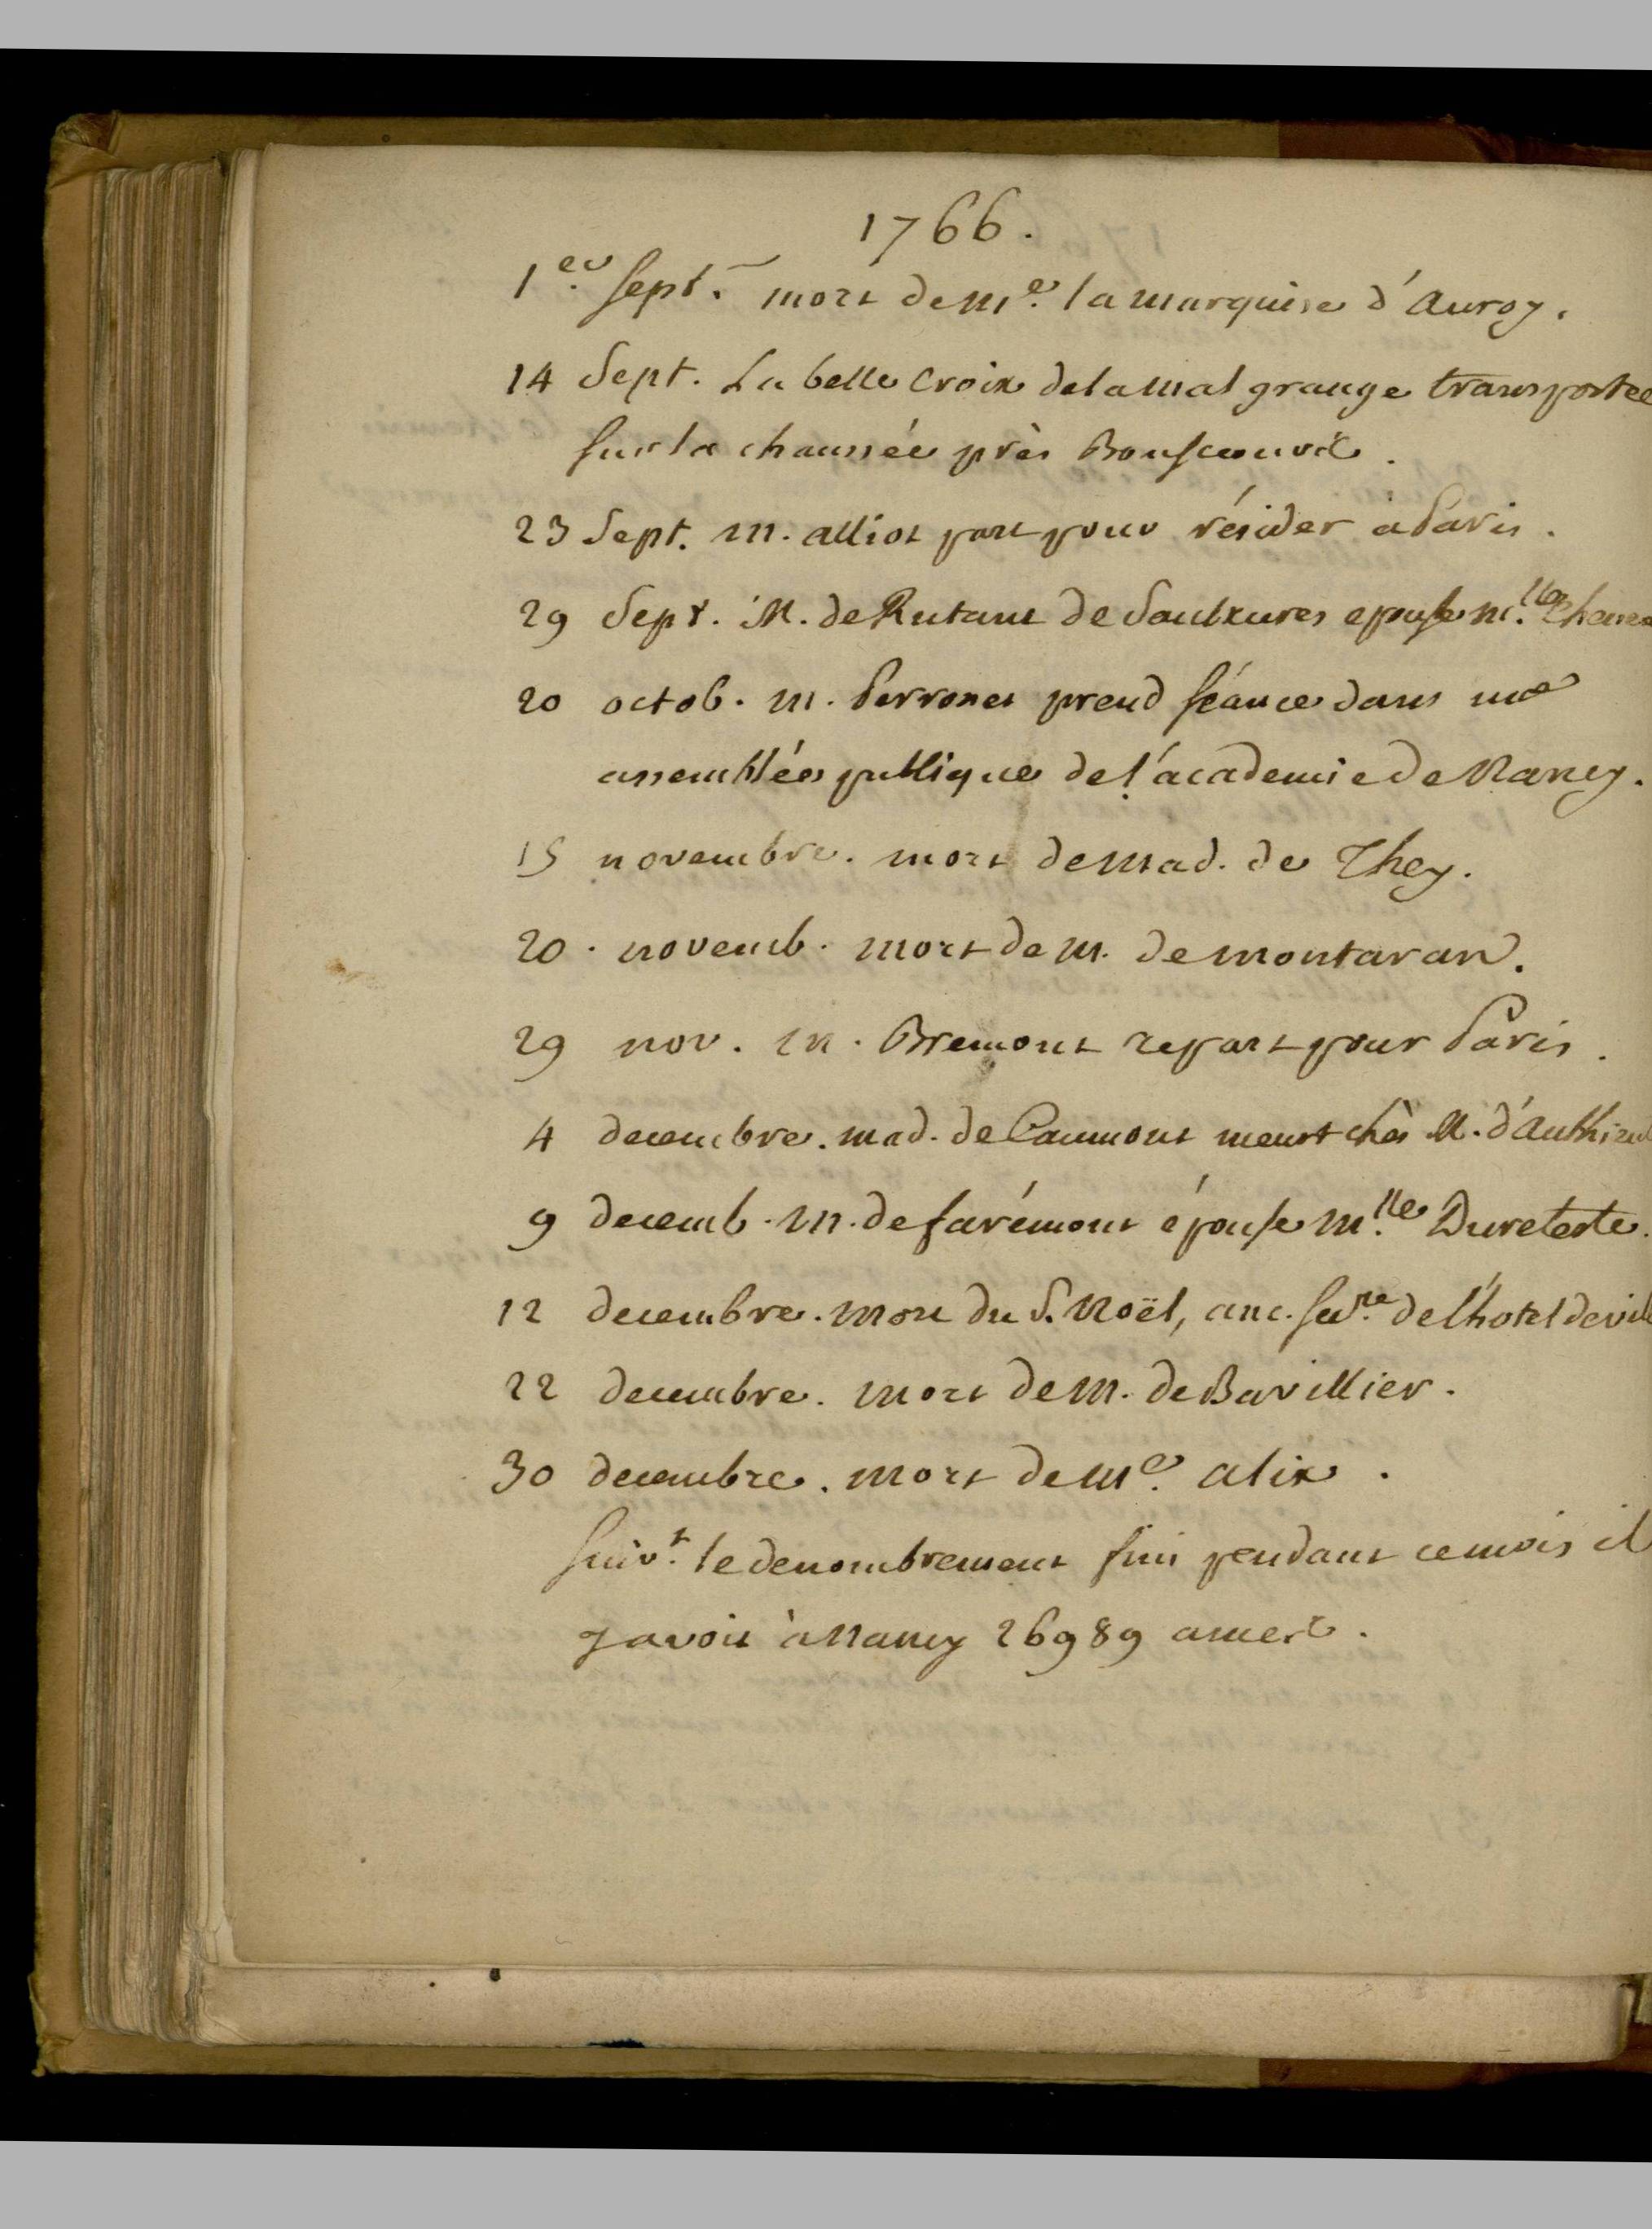 1766.
1er. sept. mort de Me. la marquise d'Auroy.
14 Sept. La belle Croix de la Malgrange transportee
sur la chaussée près Bouscouvil.
23 Sept. M. alliot part pour résider à Paris.
29 Sept. M. de Rutant de Saulxures epouse M.lle
20 octob. M. Perronet prend séance dans une
assemblée publique de l'academie de Nancy.
15 novembre. mort de Mad. de They.
20. novemb. mort de M. de montaran.
29 nov. M. Bremont repart pour Paris.
4 decembre. mad. de Caumont meurt chès M.
9 decemb. M. de farémont épouse M.lle Dureteste.
12 decembre. Mort du S. Noël, anc. secre. de l'hotel de vil
22 decembre. mort de M. de Bavillier.
30 decembre. mort de Me. alix.
suivt. le denombrement fini pendant ce mois il
y avoit à Nancy 26989 ames.